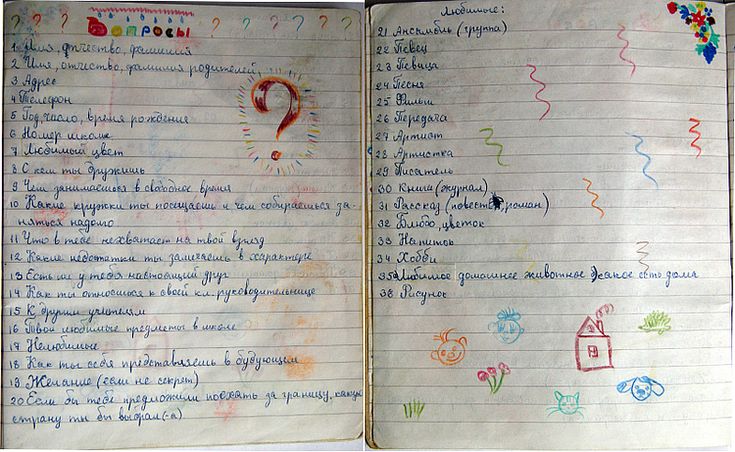 Вопросы
1 Имя, отчество, фамилия
2 Имя, отчество, фамилия родителей,
3 Адрес
4 Телефон
5 Год, число, время рождения
6 Номер школы
7 Любимый цвет
8 С кем ты дружишь
9 Чем занимаешься в свободное время
10 Какие кружки ты посещаешь и чем собираешься за-
няться надолго
11 Что в тебе нехватает на твой взгляд
12 Какие недостатки ты замечаешь в характере
13 Есть ли у тебя настоящий друг
14 Как ты относишься к своей кл. руководительнице
15 К другим учителям
16 Твои любимые предметы в школе
17 Нелюбимые
18 Как ты себя представляешь в будующем
19 Желание (если не секрет)
20 Если бы тебе предложили поехать за границу, какую
страну ты бы выбрал(-а)
Любимые:
21 Ансамбль (группа)
22 Певец
23 Певица
24 Песня
25 Фильм
26 Передача
27 Артист
28 Артистка
29 Писатель
30 Книга (журнал)
31 Рассказ (повесть, роман)
32 Блюдо, цветок
33 Напиток
34 Хобби
35 Любимое домашнее животное какое есть дома
36 Рисунок